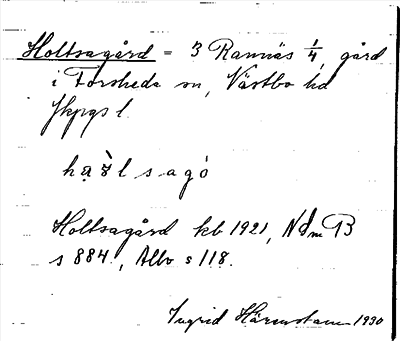 Holtsagård = 3 Rannäs 1/4, gård
i Forsheda sn, Västbo hd
Jkpgs l.
Holtsagård kb 1921, NdmB
s 884, Allv s 118.
Ingrid Härenstam 1930